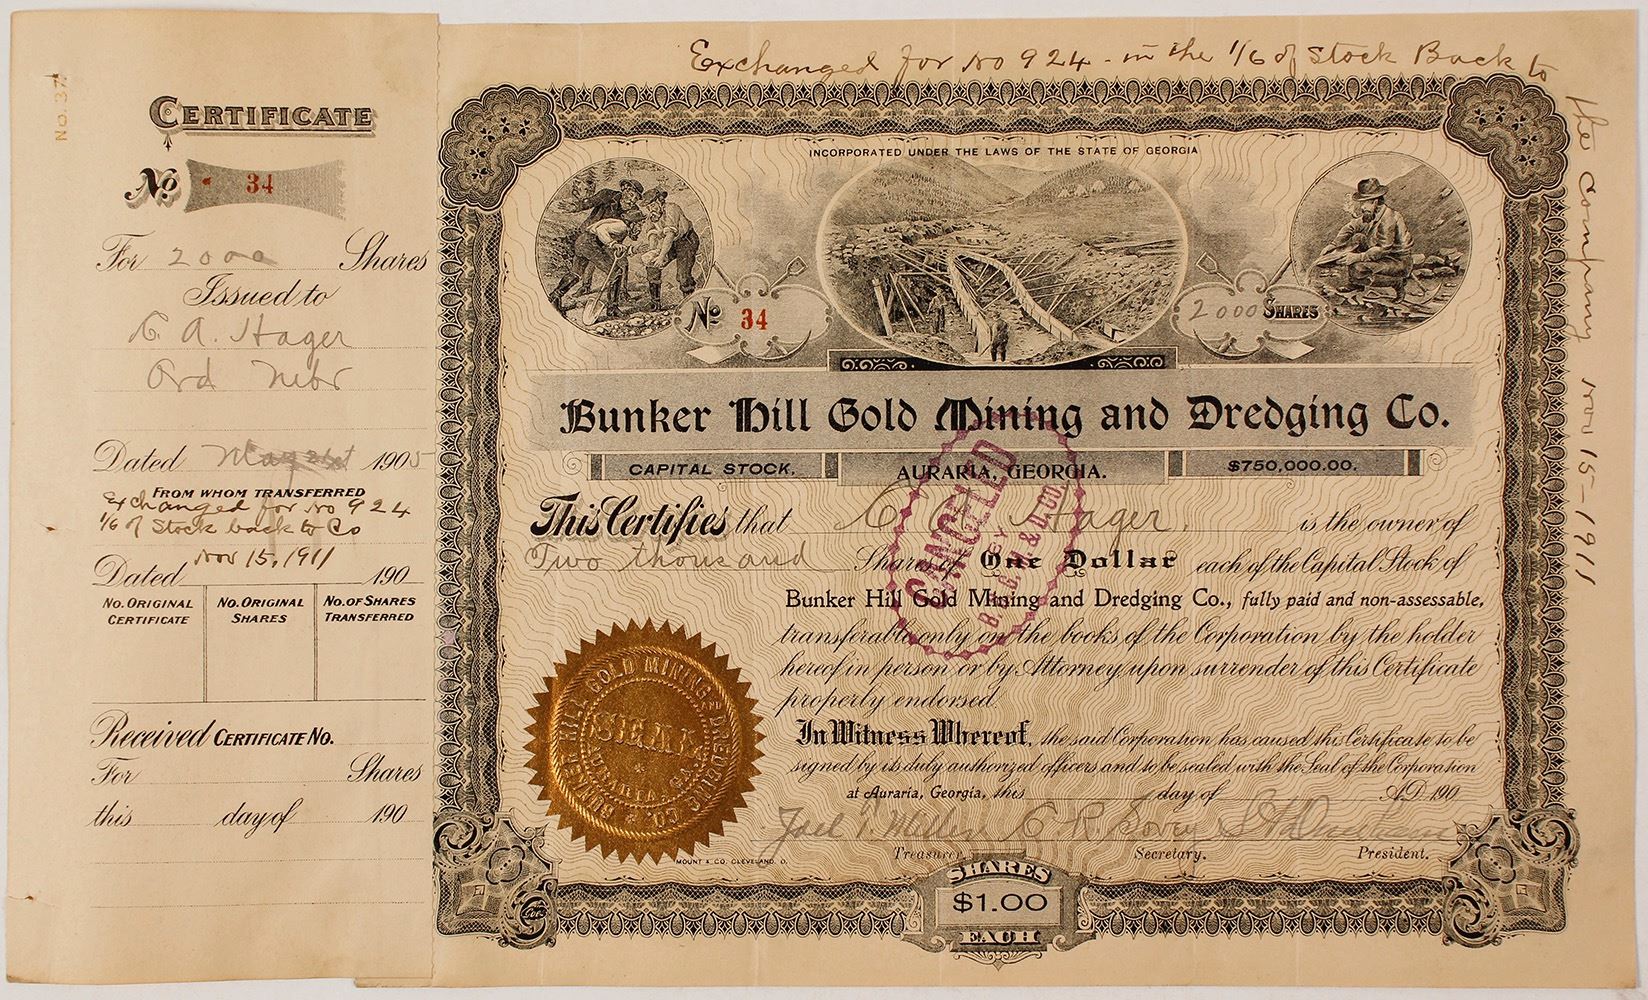 No. 37.
CERTIFICATE
No 34
For 2000 Shares
Issued to
C. A. Hager
Ord Nebr
Dated May 21st 1905
FROM WHOM TRANSFERRED
Exchanged for No 924
1/6 of Stock back to Co
Nov 15, 1911
Dated 190
NO. ORIGINAL CERTIFICATE
NO. ORIGINAL SHARES
NO. OF SHARES TRANSFERRED
Received CERTIFICATE NO.
For Shares
this day of 190
Exchanged for No 924 - in the 1/6 of Stock Back to
the Company Nov 15-1911
INCORPORATED UNDER THE LAWS OF THE STATE OF GEORGIA
No 34
2000 SHARES
Bunker Hill Gold Mining and Dredging Co.
CAPITAL STOCK. AURARIA, GEORGIA. $750,000.00.
This Certifies that C. A. Hager. is the owner of
Two thousand Shares of One Dollar each of the Capital Stock of
Bunker Hill Gold Mining and Dredging Co., fully paid and non-assessable,
transferable only on the books of the Corporation by the holder
hereof in person or by Attorney upon surrender of this Certificate
properly endorsed.
In Witness Whereof, the said Corporation has caused this Certificate to be
signed by its duly authorized officers and to be sealed with the Seal of the Corporation
at Auraria, Georgia, this day of A.D. 190
Joel T. Miller
Treasurer. Secretary. President.
CANCELED
BY
B. H. G. M. & D. CO
BUNKER HILL GOLD MINING AND DREDGING CO.
AURARIA, GA.
SEAL
MOUNT & CO. CLEVELAND, O.
SHARES
$1.00
EACH